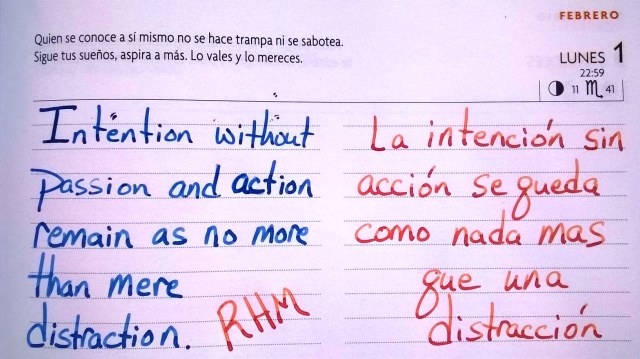 FEBRERO
Quien se conoce a sí mismo no se hace trampa ni se sabotea.
Sigue tus sueños, aspira a más. Lo vales y lo mereces.
LUNES 1
22:59
11 ♏ 41
Intention without
passion and action
remain as no more
than mere
distraction.
RHM
La intención sin
acción se queda
como nada mas
que una
distracción